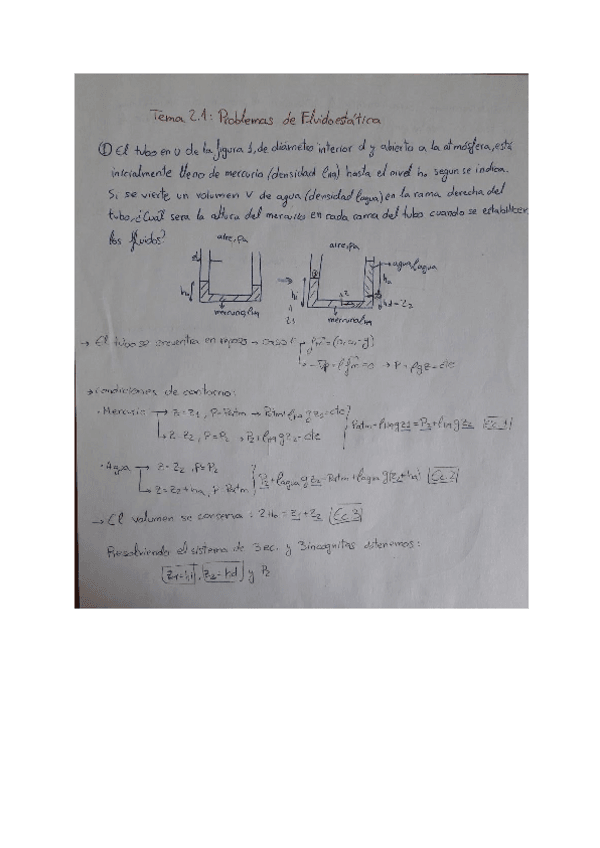 Tema 2.1: Problemas de Fluidoestática
① El tubo en U de la figura 1, de diámetro interior d y abierto a la atmósfera, está
inicialmente lleno de mercurio (densidad ρm) hasta el nivel ho según se indica.
Si se vierte un volumen V de agua (densidad ρagua) en la rama derecha del
tubo, ¿Cuál será la altura del mercurio en cada rama del tubo cuando se establecen
los fluidos?
aire, pa
aire, pa
agua, ρagua
ho
hi
ha
hd = z2
z1
mercurio, ρm
mercurio, ρm
→ El tubo se encuentra en reposo →
→ Condiciones de contorno:
· Mercurio → z = z1, P = Patm →
z = z2, P = P2 → P2 + ρm g z2 = cte
[Ec 1]
· Agua → z = z2, P = P2
z = z2 + ha, P = Patm
[Ec 2]
→ El volumen se conserva: 2ho = z1 + z2 [Ec 3]
Resolviendo el sistema de 3 ec. y 3 incógnitas obtenemos:
z1 = hi, z2 = hd y P2